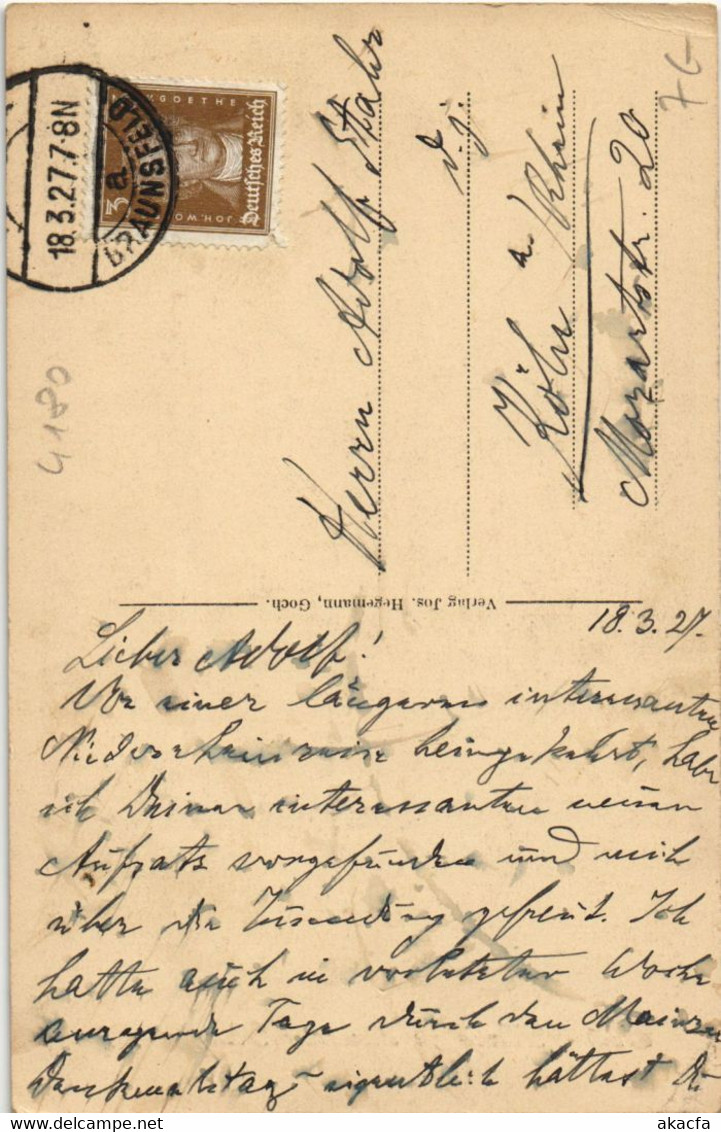 18.3.27.7-8N
a
BRAUNSFELD
3
JOH.WO
GOETHE
Deutsches Reich
7G
4180
Herrn Adolf
d. j.
Köln a Rhein
Mozartstr. 20
Verlag Jos. Hegemann, Goch.
18.3.27.
Lieber Adolf!
Von einer längeren interessanten
Niederrheinreise heimgekehrt, habe
ich Deinen interessanten neuen
Aufsatz vorgefunden und mich
über die Zusendung gefreut. Ich
hatte auch in vorletzter Woche
anregende Tage durch den Mainzer
Denkmalstag eigentlich hättest Du
akacfa